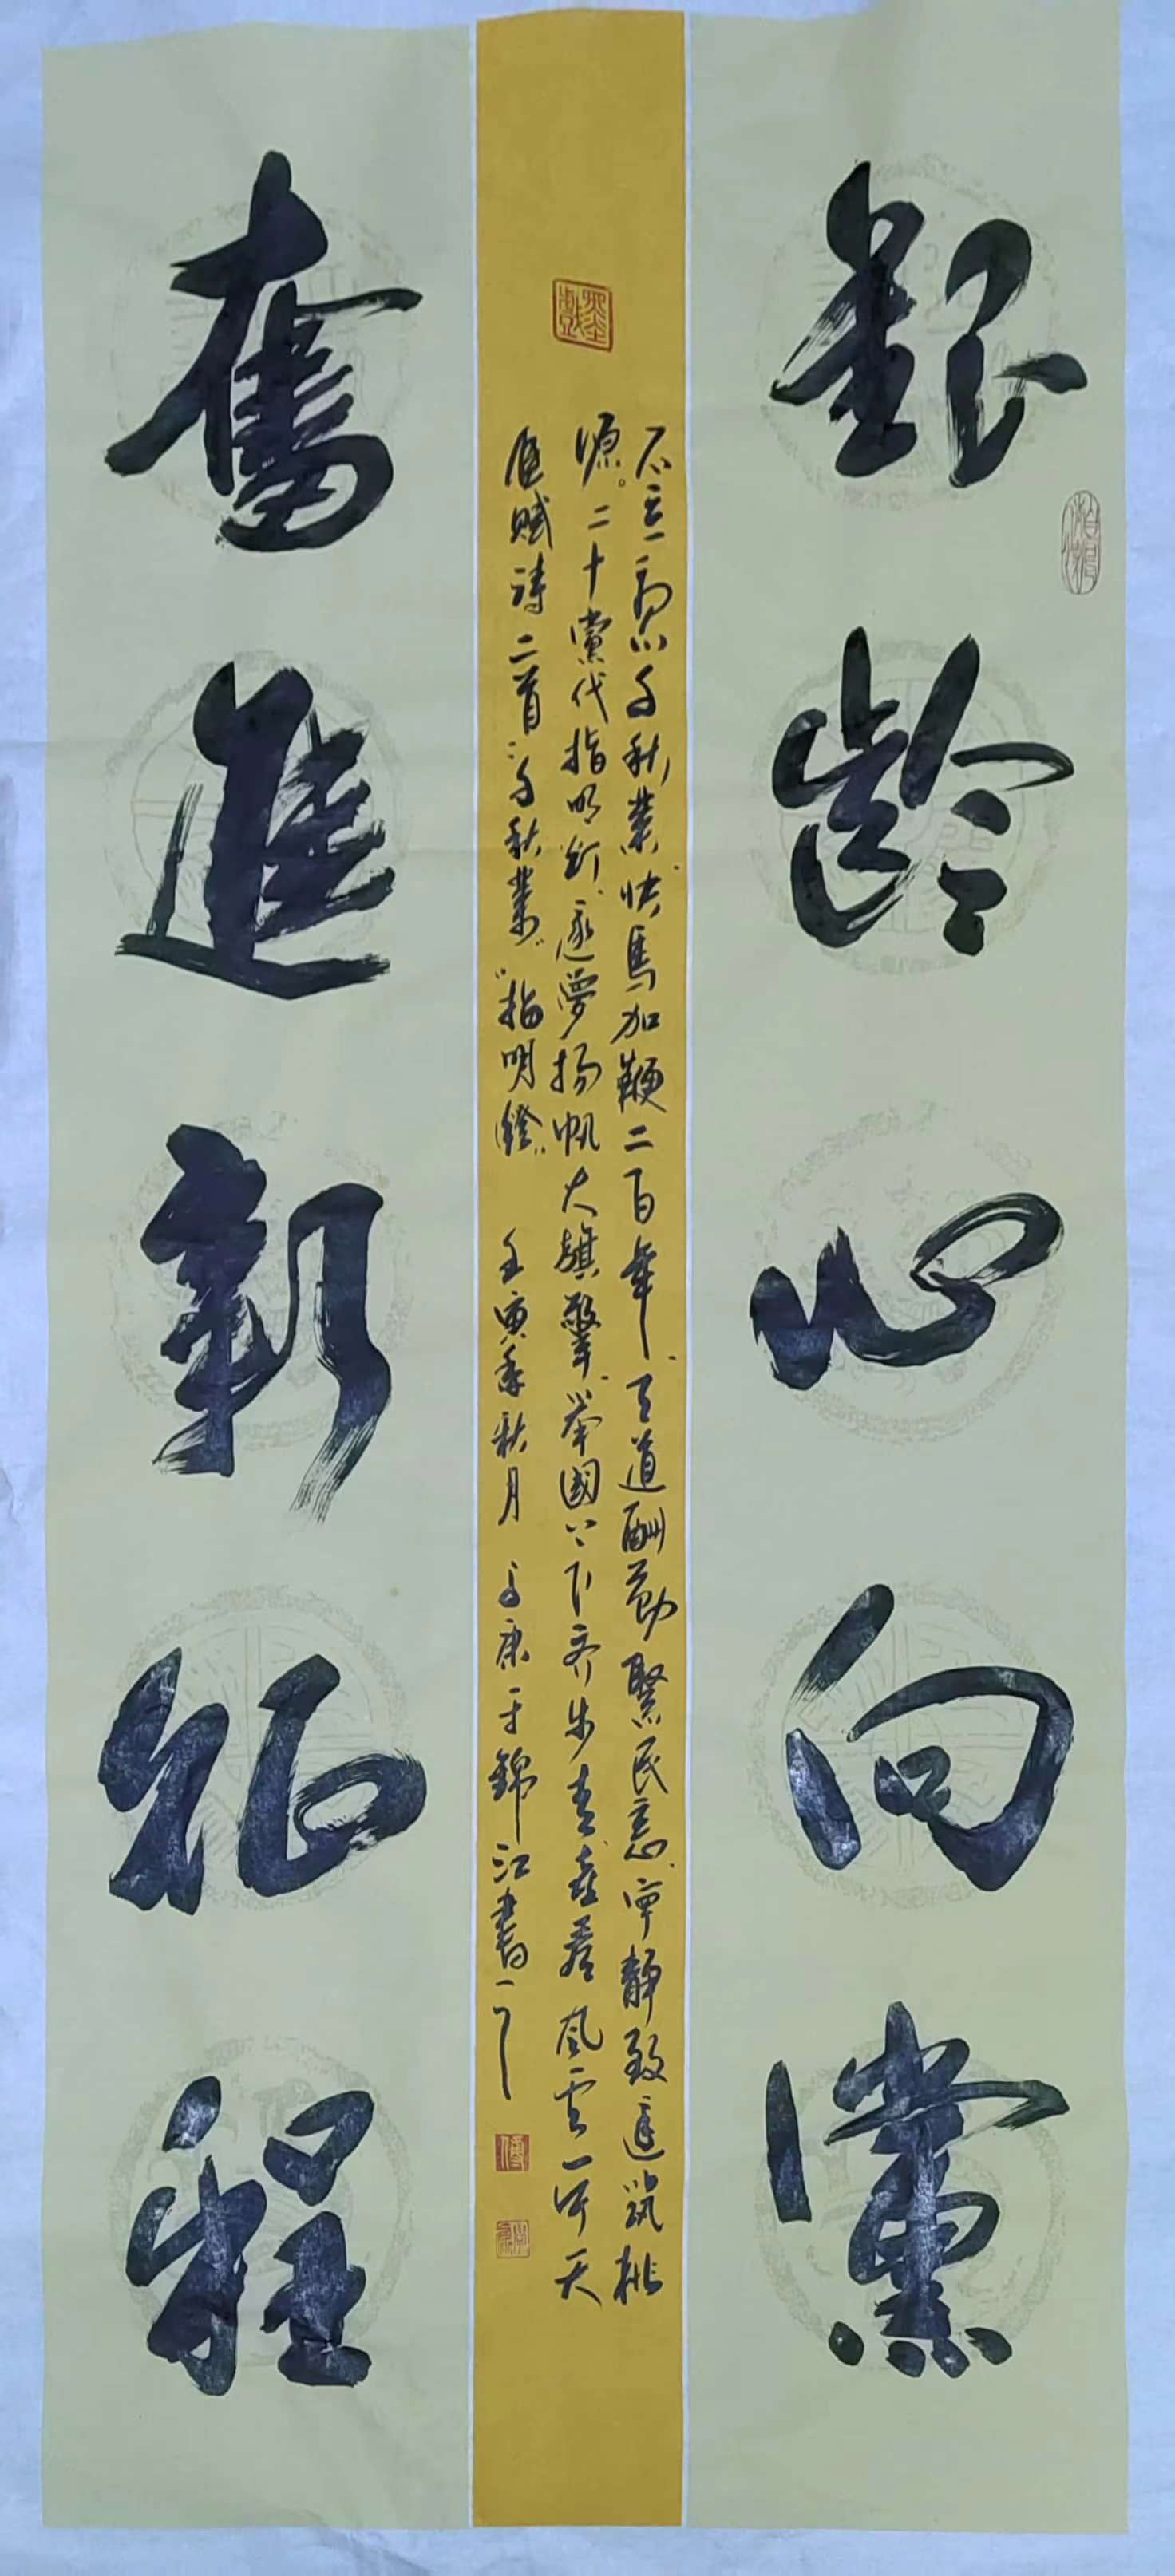 齡心向黨
初心千秋業快馬加鞭二百年、天道酬勤緊民意、寧靜致遠築桃
源。二十黨代指明灯、逐夢揚帆大旗擎、舉國上下齐步走、喜看風雲一片天
賦詩二首："千秋業""指明鐙" 壬寅年秋月 康于錦江書
奮進新征程